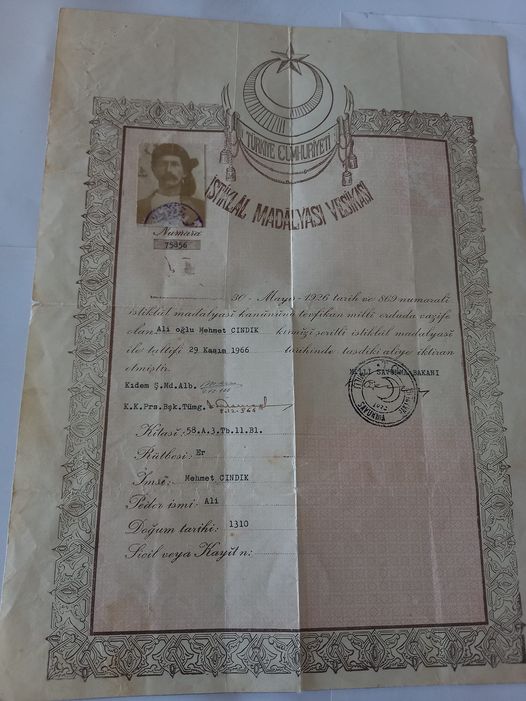 TÜRKİYE CUMHURİYETİ
İSTİKLÂL MADALYASI VESİKASI
Numara
75856
30 - Mayıs - 1926 tarih ve 869 numaralı
istiklâl madalyası kanununa tevfikan milli orduda vazife
olan Ali oğlu Mehmet CINDIK kırmızı şeritli istiklâl madalyası
ile taltifi 29 Kasım 1966 tarihinde tasdiki aliye iktiran
etmiştir.
MİLLİ SAVUNMA BAKANI
Kıdem Ş.Md.Alb.
K.K.Prs.Bşk.Tümg.
Kıtası: 58.A.3.Tb.11.Bl.
Rütbesi: Er
İmsi: Mehmet CINDIK
Peder ismi: Ali
Doğum tarihi: 1310
Sicil veya Kayit n: